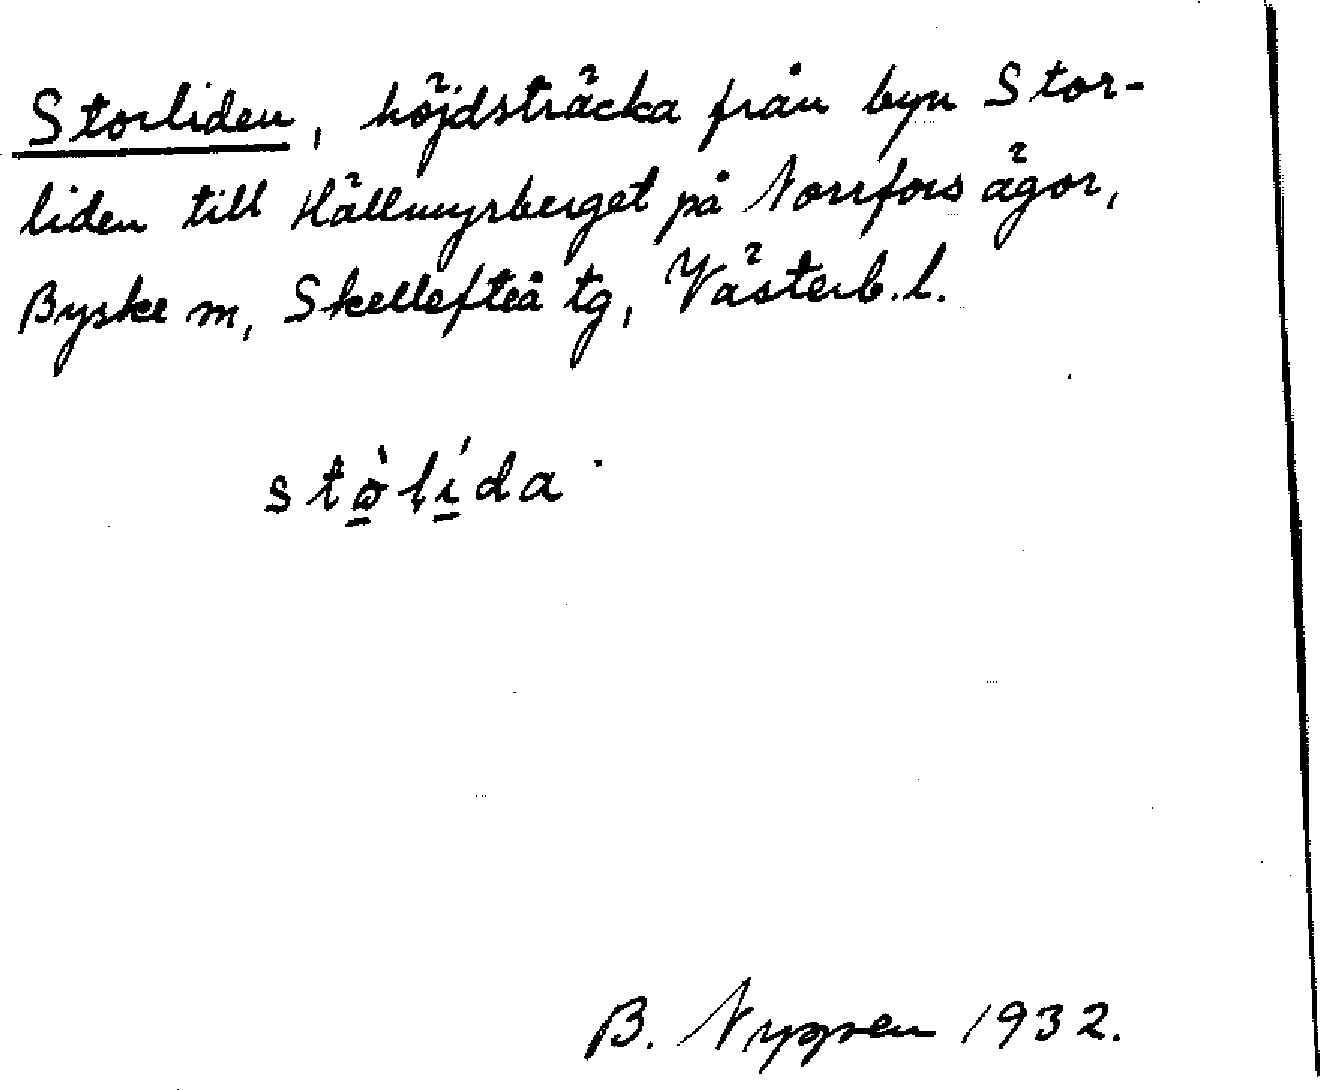 Storliden, höjdsträcka från byn Stor-
liden till Hällmyrberget på Norrfors ägor,
Byske m, Skellefteå tg, Västerb. l.
stò̱lí̱da
B. Nyppen 1932.